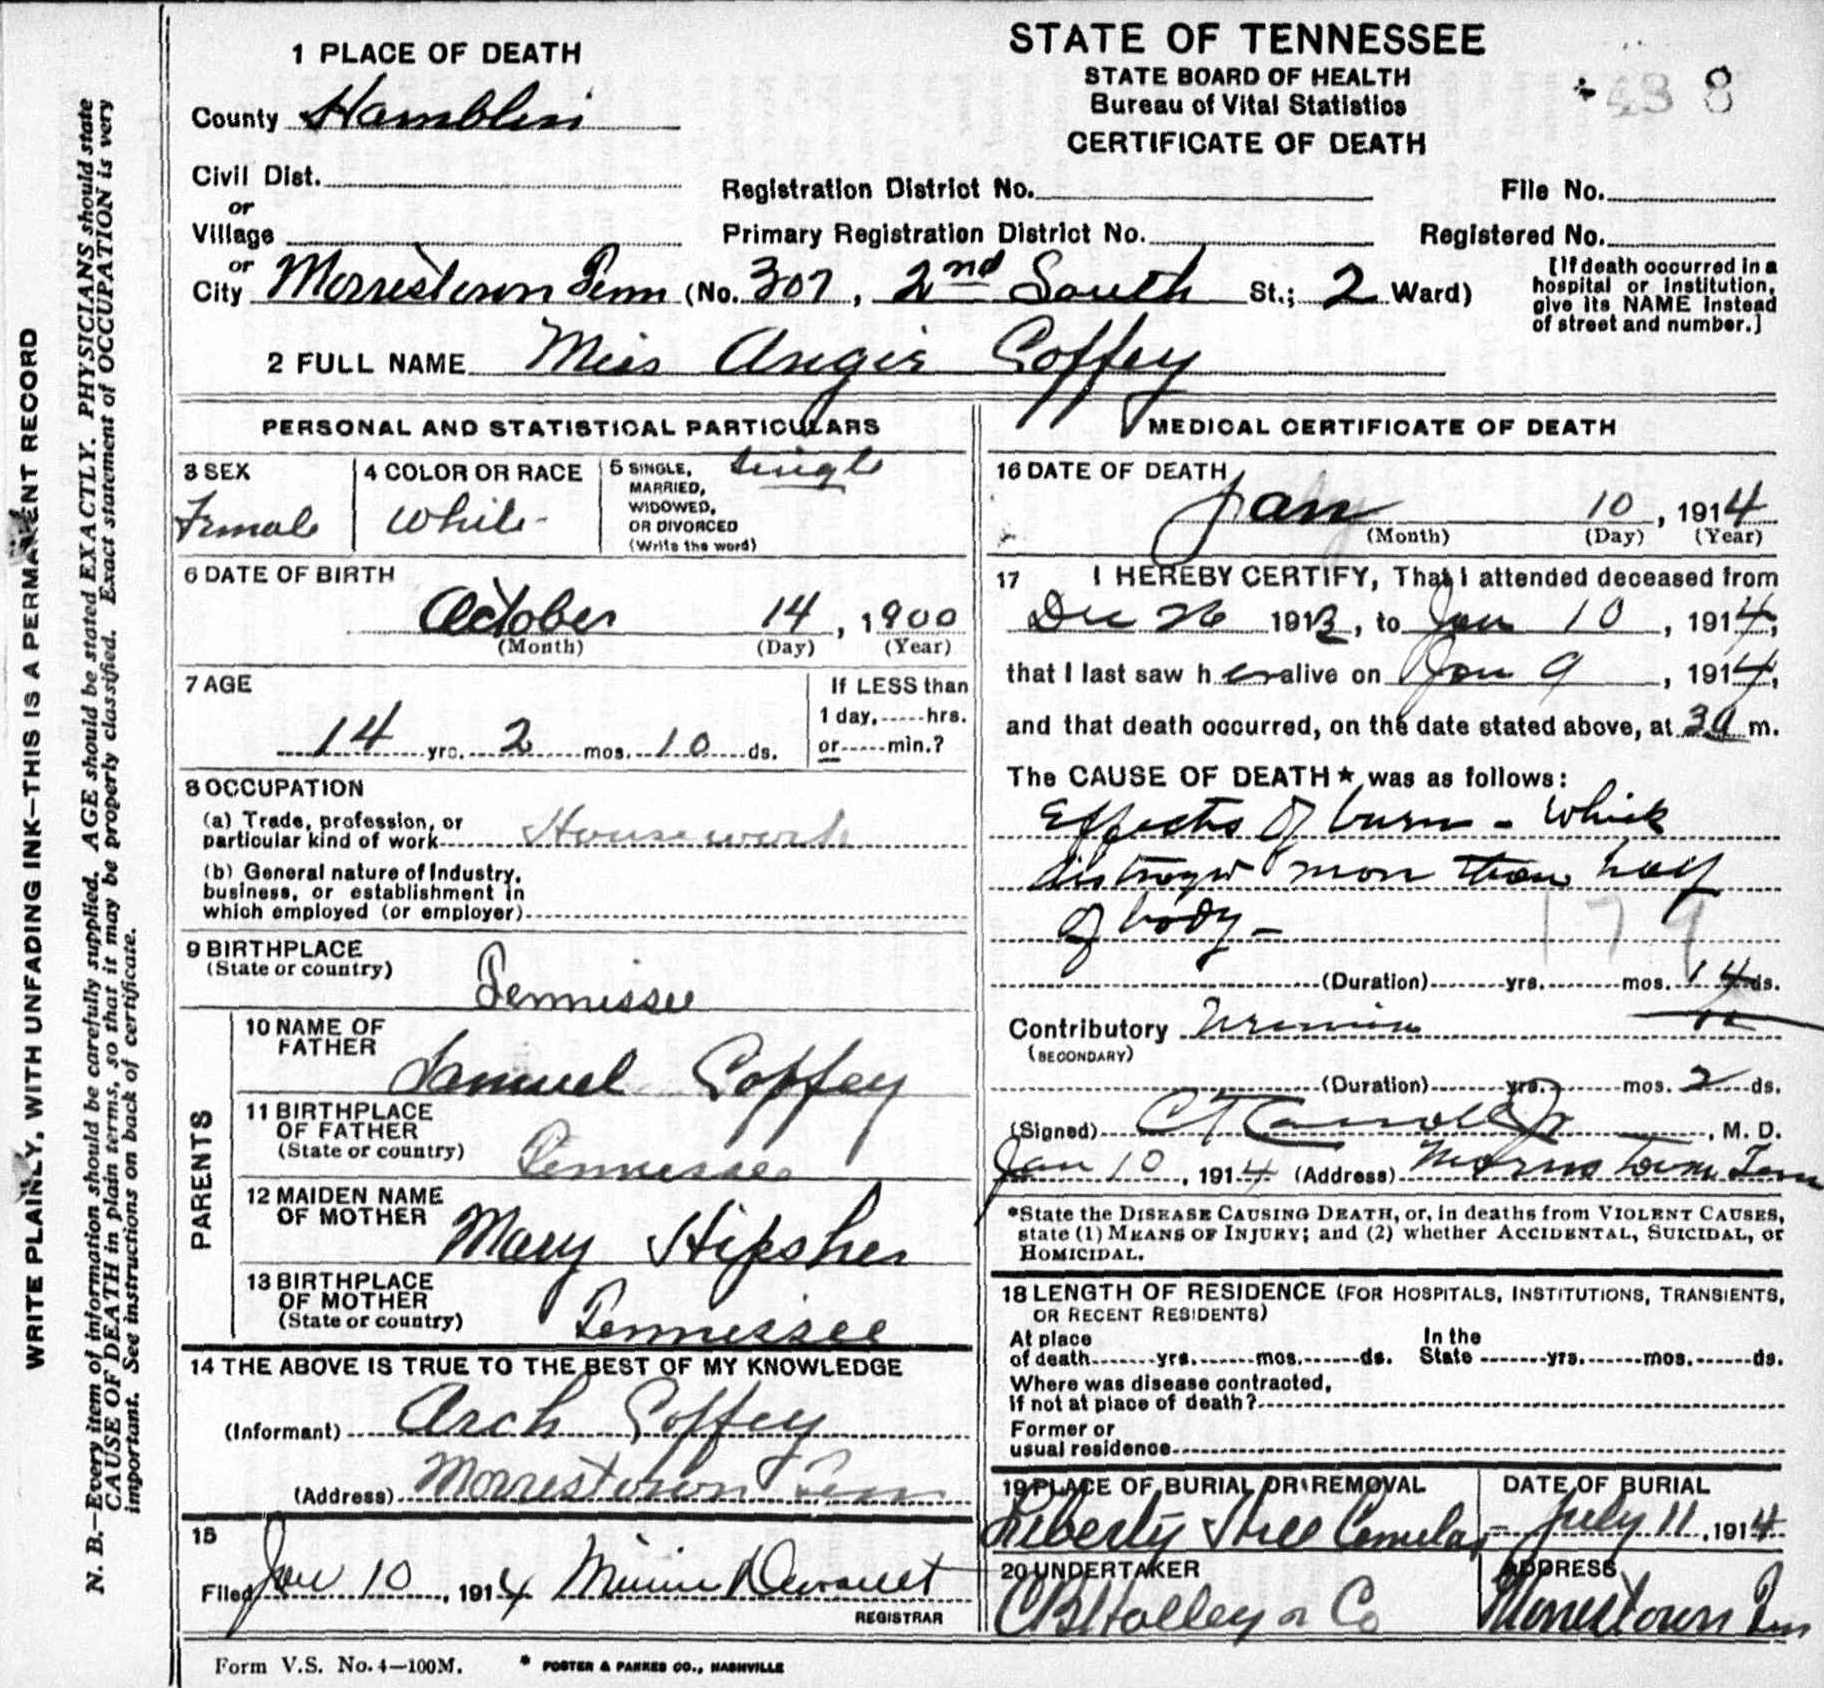 WRITE PLAINLY, WITH UNFADING INK—THIS IS A PERMANENT RECORD
N. B.—Every item of information should be carefully supplied. AGE should be stated EXACTLY. PHYSICIANS should state
CAUSE OF DEATH in plain terms, so that it may be properly classified. Exact statement of OCCUPATION is very
important. See instructions on back of certificate.
1 PLACE OF DEATH
County Hamblin
Civil Dist.
or
Village
or
City Morristown Tenn (No. 307, 2nd South St.; 2 Ward)
STATE OF TENNESSEE
STATE BOARD OF HEALTH
Bureau of Vital Statistics
CERTIFICATE OF DEATH
438
Registration District No.
File No.
Primary Registration District No.
Registered No.
[If death occurred in a
hospital or institution,
give its NAME instead
of street and number.]
2 FULL NAME Miss Angie Coffey
PERSONAL AND STATISTICAL PARTICULARS
3 SEX
Female
4 COLOR OR RACE
White
5 SINGLE,
MARRIED,
WIDOWED,
OR DIVORCED
(Write the word)
Single
6 DATE OF BIRTH
October 14, 1900
(Month) (Day) (Year)
7 AGE
14 yrs. 2 mos. 10 ds.
If LESS than
1 day, hrs.
or min.?
8 OCCUPATION
(a) Trade, profession, or
particular kind of work Housework
(b) General nature of Industry,
business, or establishment in
which employed (or employer)
9 BIRTHPLACE
(State or country)
Tennissee
PARENTS
10 NAME OF
FATHER
Samuel Coffey
11 BIRTHPLACE
OF FATHER
(State or country)
Tennessee
12 MAIDEN NAME
OF MOTHER
Mary Hipsher
13 BIRTHPLACE
OF MOTHER
(State or country)
Tennessee
14 THE ABOVE IS TRUE TO THE BEST OF MY KNOWLEDGE
(Informant) Arch Coffey
(Address) Morrestown Tenn
15
Filed Jan 10, 1914 Minnie
REGISTRAR
MEDICAL CERTIFICATE OF DEATH
16 DATE OF DEATH
Jan 10, 1914
(Month) (Day) (Year)
17 I HEREBY CERTIFY, That I attended deceased from
Dec 26 1913, to Jan 10, 1914,
that I last saw her alive on Jan 9, 1914,
and that death occurred, on the date stated above, at 3 a m.
The CAUSE OF DEATH* was as follows:
Effects of burn - which
distroyed more than half
of body -
179
(Duration) yrs. mos. 14 ds.
Contributory Uremia
(SECONDARY)
(Duration) yrs. mos. 2 ds.
(Signed) C T Carroll Jr, M. D.
Jan 10, 1914 (Address) Morristown Tenn
*State the DISEASE CAUSING DEATH, or, in deaths from VIOLENT CAUSES,
state (1) MEANS OF INJURY; and (2) whether ACCIDENTAL, SUICIDAL, or
HOMICIDAL.
18 LENGTH OF RESIDENCE (FOR HOSPITALS, INSTITUTIONS, TRANSIENTS,
OR RECENT RESIDENTS)
At place
of death yrs. mos. ds.
In the
State yrs. mos. ds.
Where was disease contracted,
If not at place of death?
Former or
usual residence
19 PLACE OF BURIAL OR REMOVAL
Liberty Hill
DATE OF BURIAL
July 11, 1914
20 UNDERTAKER
C B Holley & Co
ADDRESS
Morrestown Tenn
Form V.S. No. 4—100M.
* FOSTER & PARKES CO., NASHVILLE